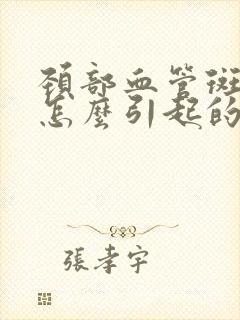 頚部血管斑
怎麼引起的
張孝宇